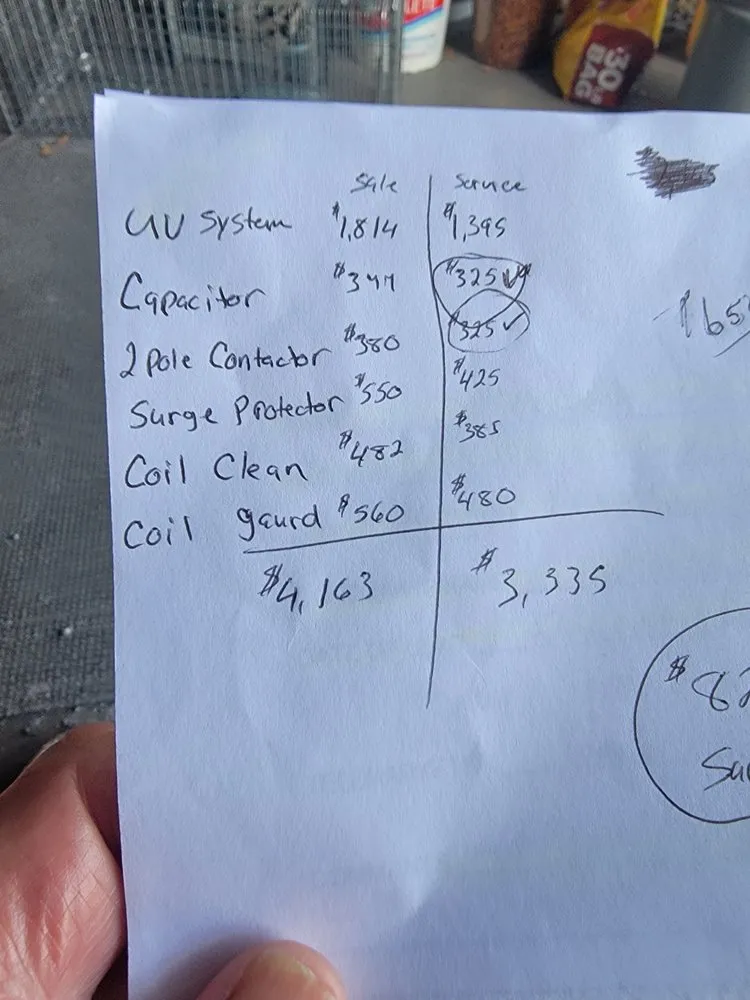 Sale Service
UV System $1,814 $1,395
Capacitor $377 $325
2 Pole Contactor $380 325
Surge Protector $550 $425
Coil Clean $482 $385
Coil gaurd $560 $480
$4,163 $3,335
BAG